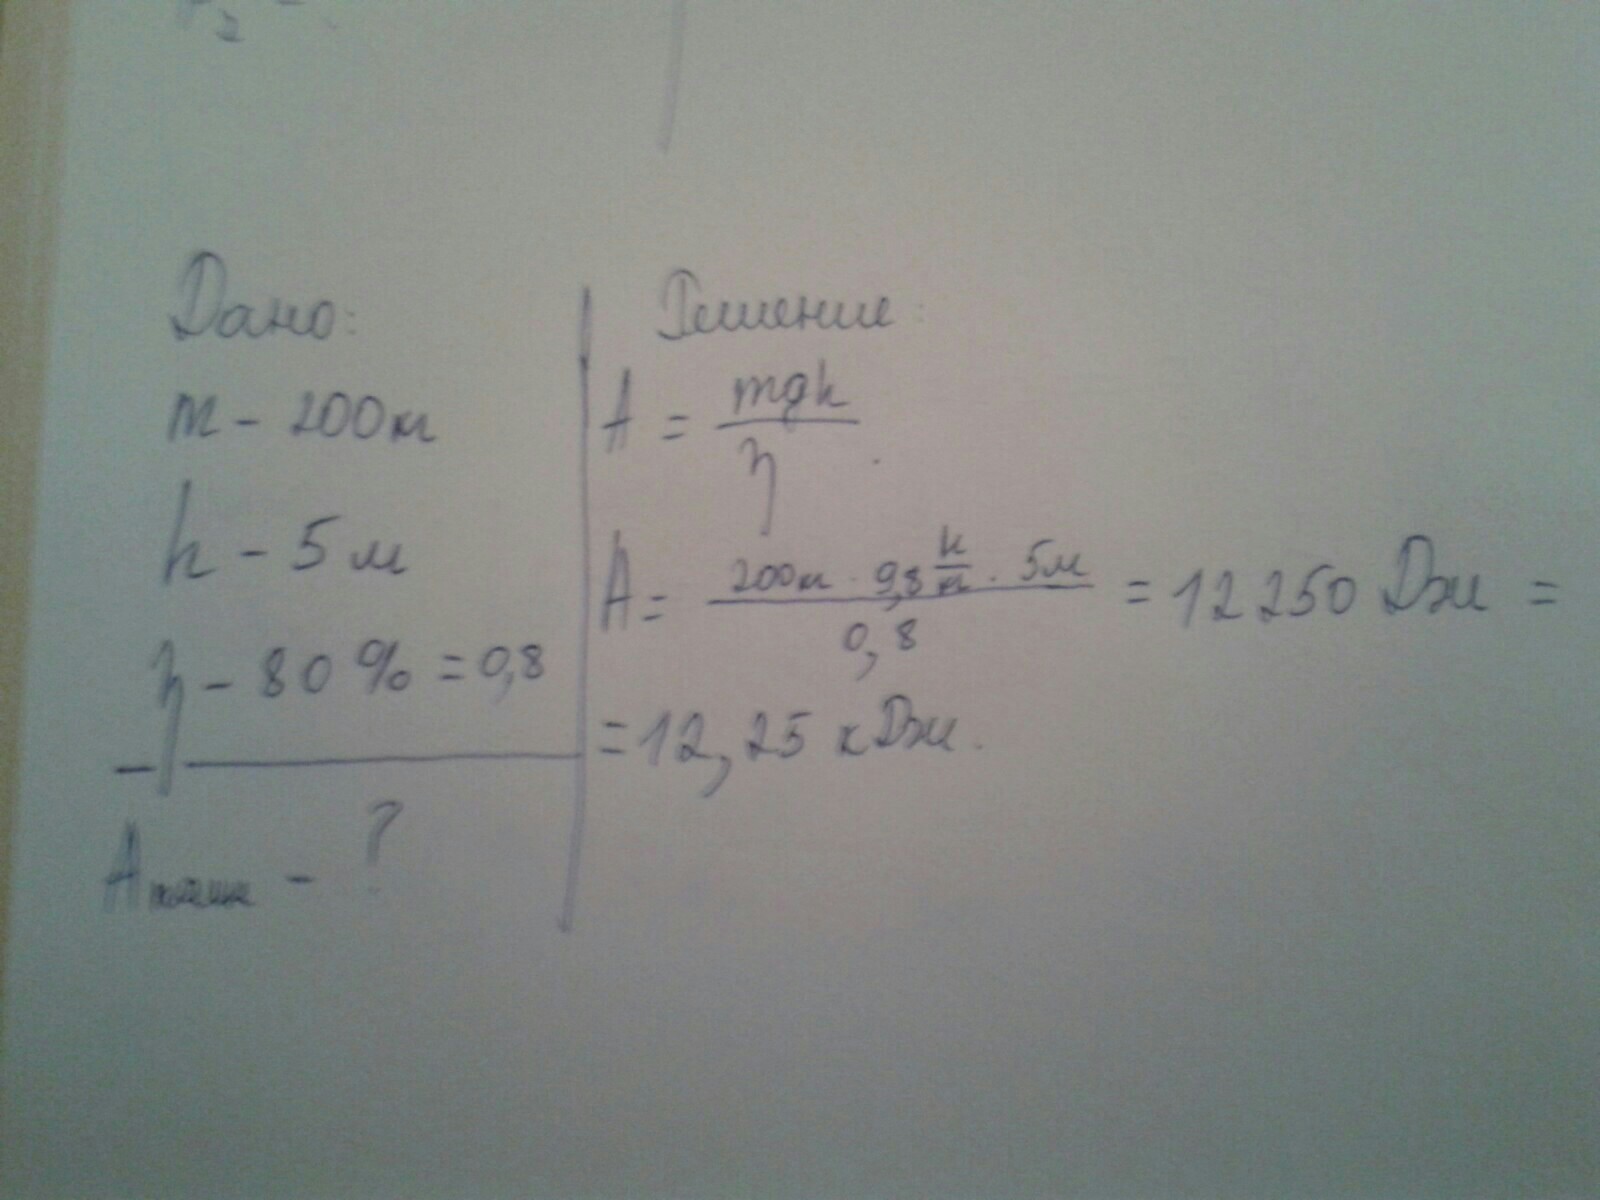 Дано:
m - 200кг
h - 5 м
η - 80 % = 0,8
A - ?
Решение:
A = mgh / η
A = 200кг · 9,8 н/кг · 5м / 0,8 = 12 250 Дж =
= 12,25 кДж.